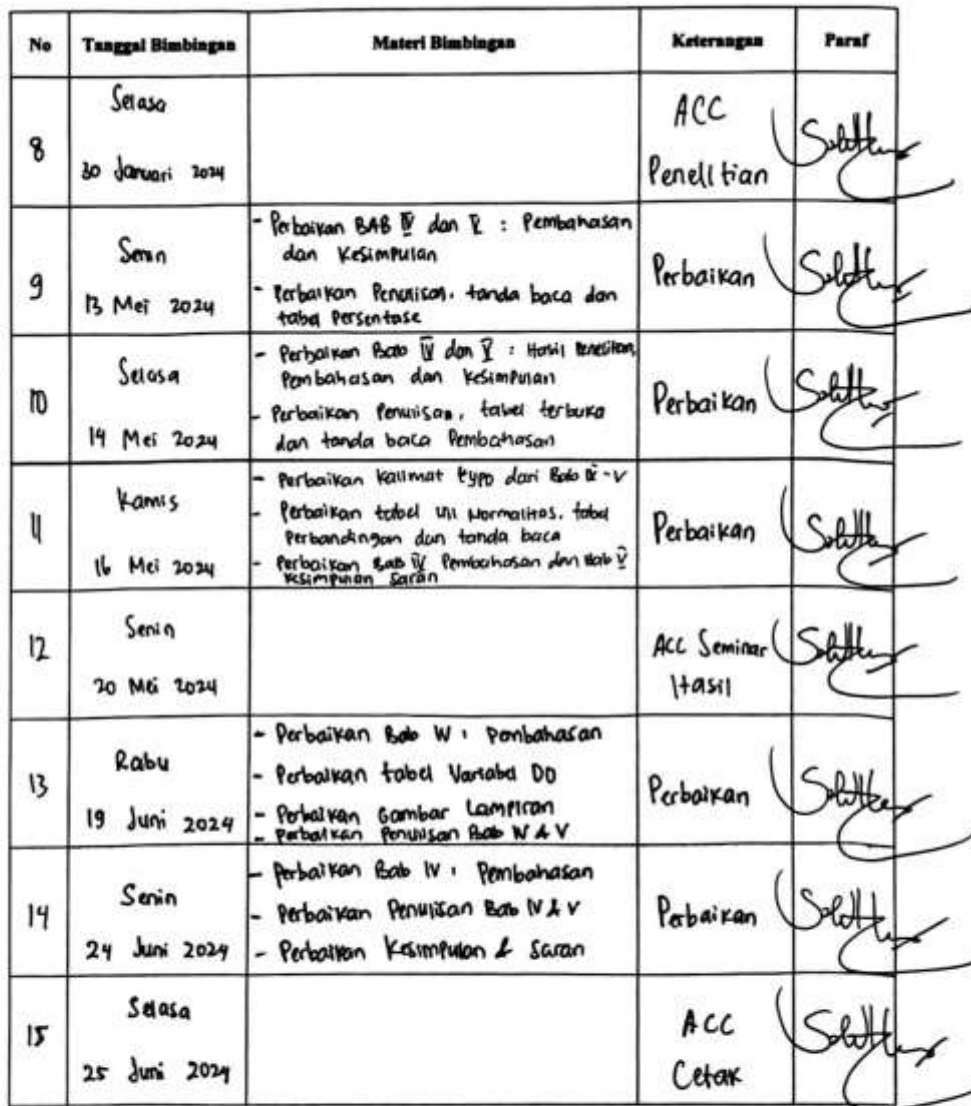 No Tanggal Bimbingan Materi Bimbingan Keterangan Paraf
8
Selasa
30 Januari 2024
ACC
Penelitian
9
Senin
13 Mei 2024
- Perbaikan BAB IV dan V : Pembahasan
dan Kesimpulan
- Perbaikan Penulisan, tanda baca dan
tabel Persentase
Perbaikan
10
Selasa
14 Mei 2024
- Perbaikan Bab IV dan V : Hasil Penelitian,
Pembahasan dan Kesimpulan
- Perbaikan Penulisan, tabel terbuka
dan tanda baca Pembahasan
Perbaikan
11
Kamis
16 Mei 2024
- Perbaikan kalimat typo dari Bab IV - V
- Perbaikan tabel Uji Normalitas, tabel
Perbandingan dan tanda baca
- Perbaikan Bab IV Pembahasan dan Bab V
Kesimpulan Saran
Perbaikan
12
Senin
20 Mei 2024
ACC Seminar
Hasil
13
Rabu
19 Juni 2024
- Perbaikan Bab IV : Pembahasan
- Perbaikan tabel Variabel DO
- Perbaikan Gambar Lampiran
- Perbaikan Penulisan Bab IV & V
Perbaikan
14
Senin
24 Juni 2024
- Perbaikan Bab IV : Pembahasan
- Perbaikan Penulisan Bab IV & V
- Perbaikan Kesimpulan & Saran
Perbaikan
15
Selasa
25 Juni 2024
ACC
Cetak